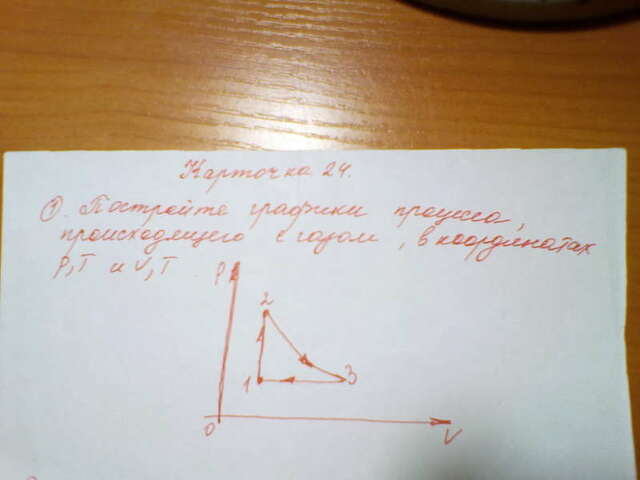 Карточка 24.
1. Постройте графики процесса,
происходящего с газом, в координатах
P,T и V,T
P
2
1
3
0
V